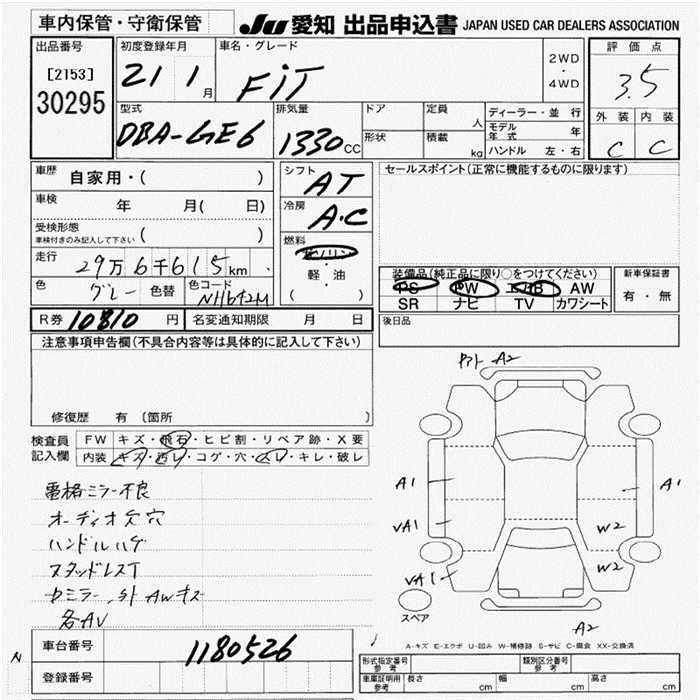 車内保管・守衛保管
JU 愛知 出品申込書 JAPAN USED CAR DEALERS ASSOCIATION
出品番号
[2153]
30295
初度登録年月
21 1月
車名・グレード
FiT
2WD
・
4WD
評価点
3.5
外装 内装
C C
型式
DBA-GE6
排気量
1330cc
ドア
形状
定員 人
積載 kg
ディーラー・並行
モデル年式 年
ハンドル 左・右
車歴
自家用・( )
車検
年 月( 日)
受検形態
車検付きのみ記入して下さい ( )
走行
29万6千615km
色
グレー
色替
色コード
NH642M
シフト
AT
冷房
A.C
燃料
ガソリン
・
軽・油
( )
セールスポイント(正常に機能するものに限ります)
装備品(純正品に限り○をつけてください)
PS PW エアB AW
SR ナビ TV カワシート
新車保証書
有・無
R券 10810 円
名変通知期限 月 日
後日品
注意事項申告欄(不具合内容等は具体的に記入して下さい)
修復歴 有 〔箇所
検査員
記入欄
FW キズ・飛石・ヒビ割・リペア跡・X要
内装 キズ・汚レ・コゲ・穴・スレ・キレ・破レ
電格ミラー不良
オーディオ欠穴
ハンドルハゲ
スタッドレスT
AWキズ
各AV
A2
A1
VA1
VA1
A1
W2
W2
A2
スペア
A-キズ E-エクボ U-凹み W-補修跡 S-サビ C-腐食 XX-交換済
車台番号
1180526
登録番号
N
形式指定番号
参考
類別区分番号
参考
車庫証明用
参考
長さ cm
幅 cm
高さ cm